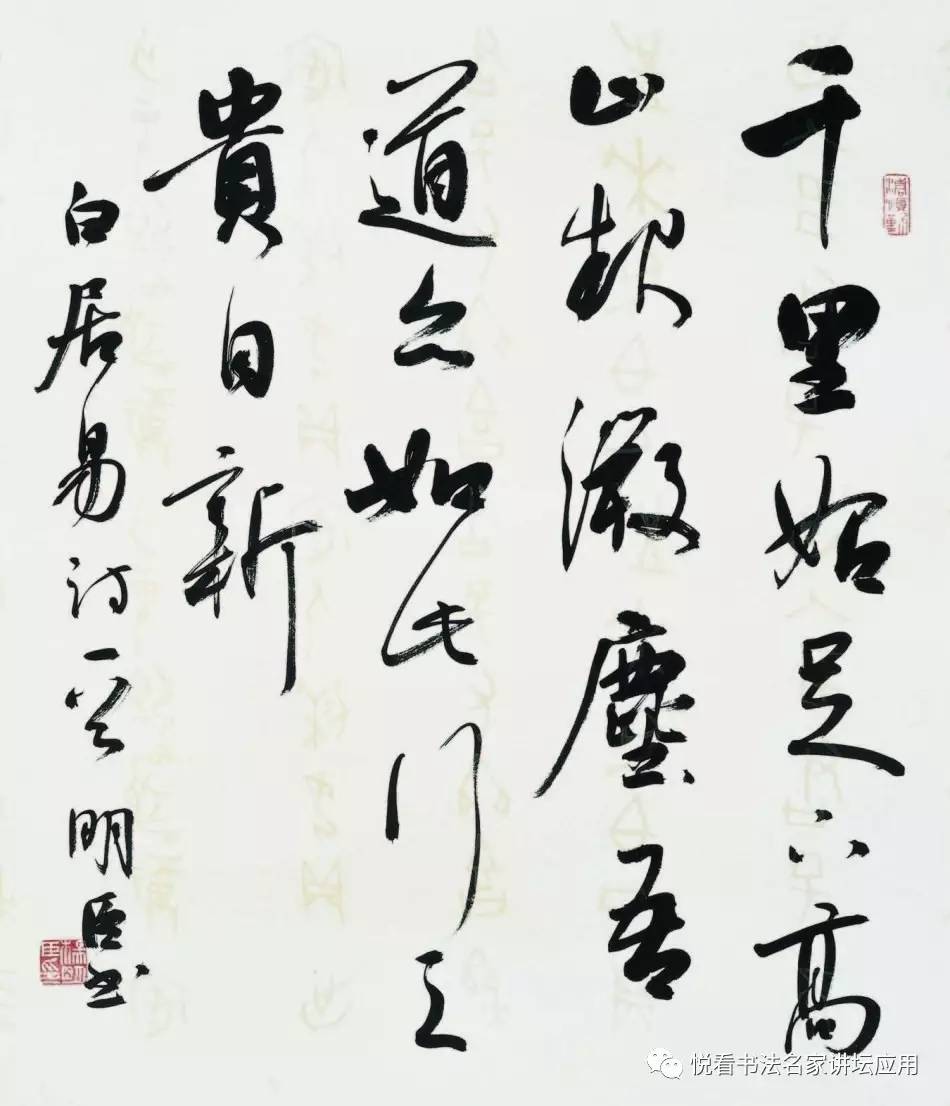 千里始足下高
山起微塵吾
道亦如此行之
貴日新
白居易詩一首 明臣書
悦看书法名家讲坛应用